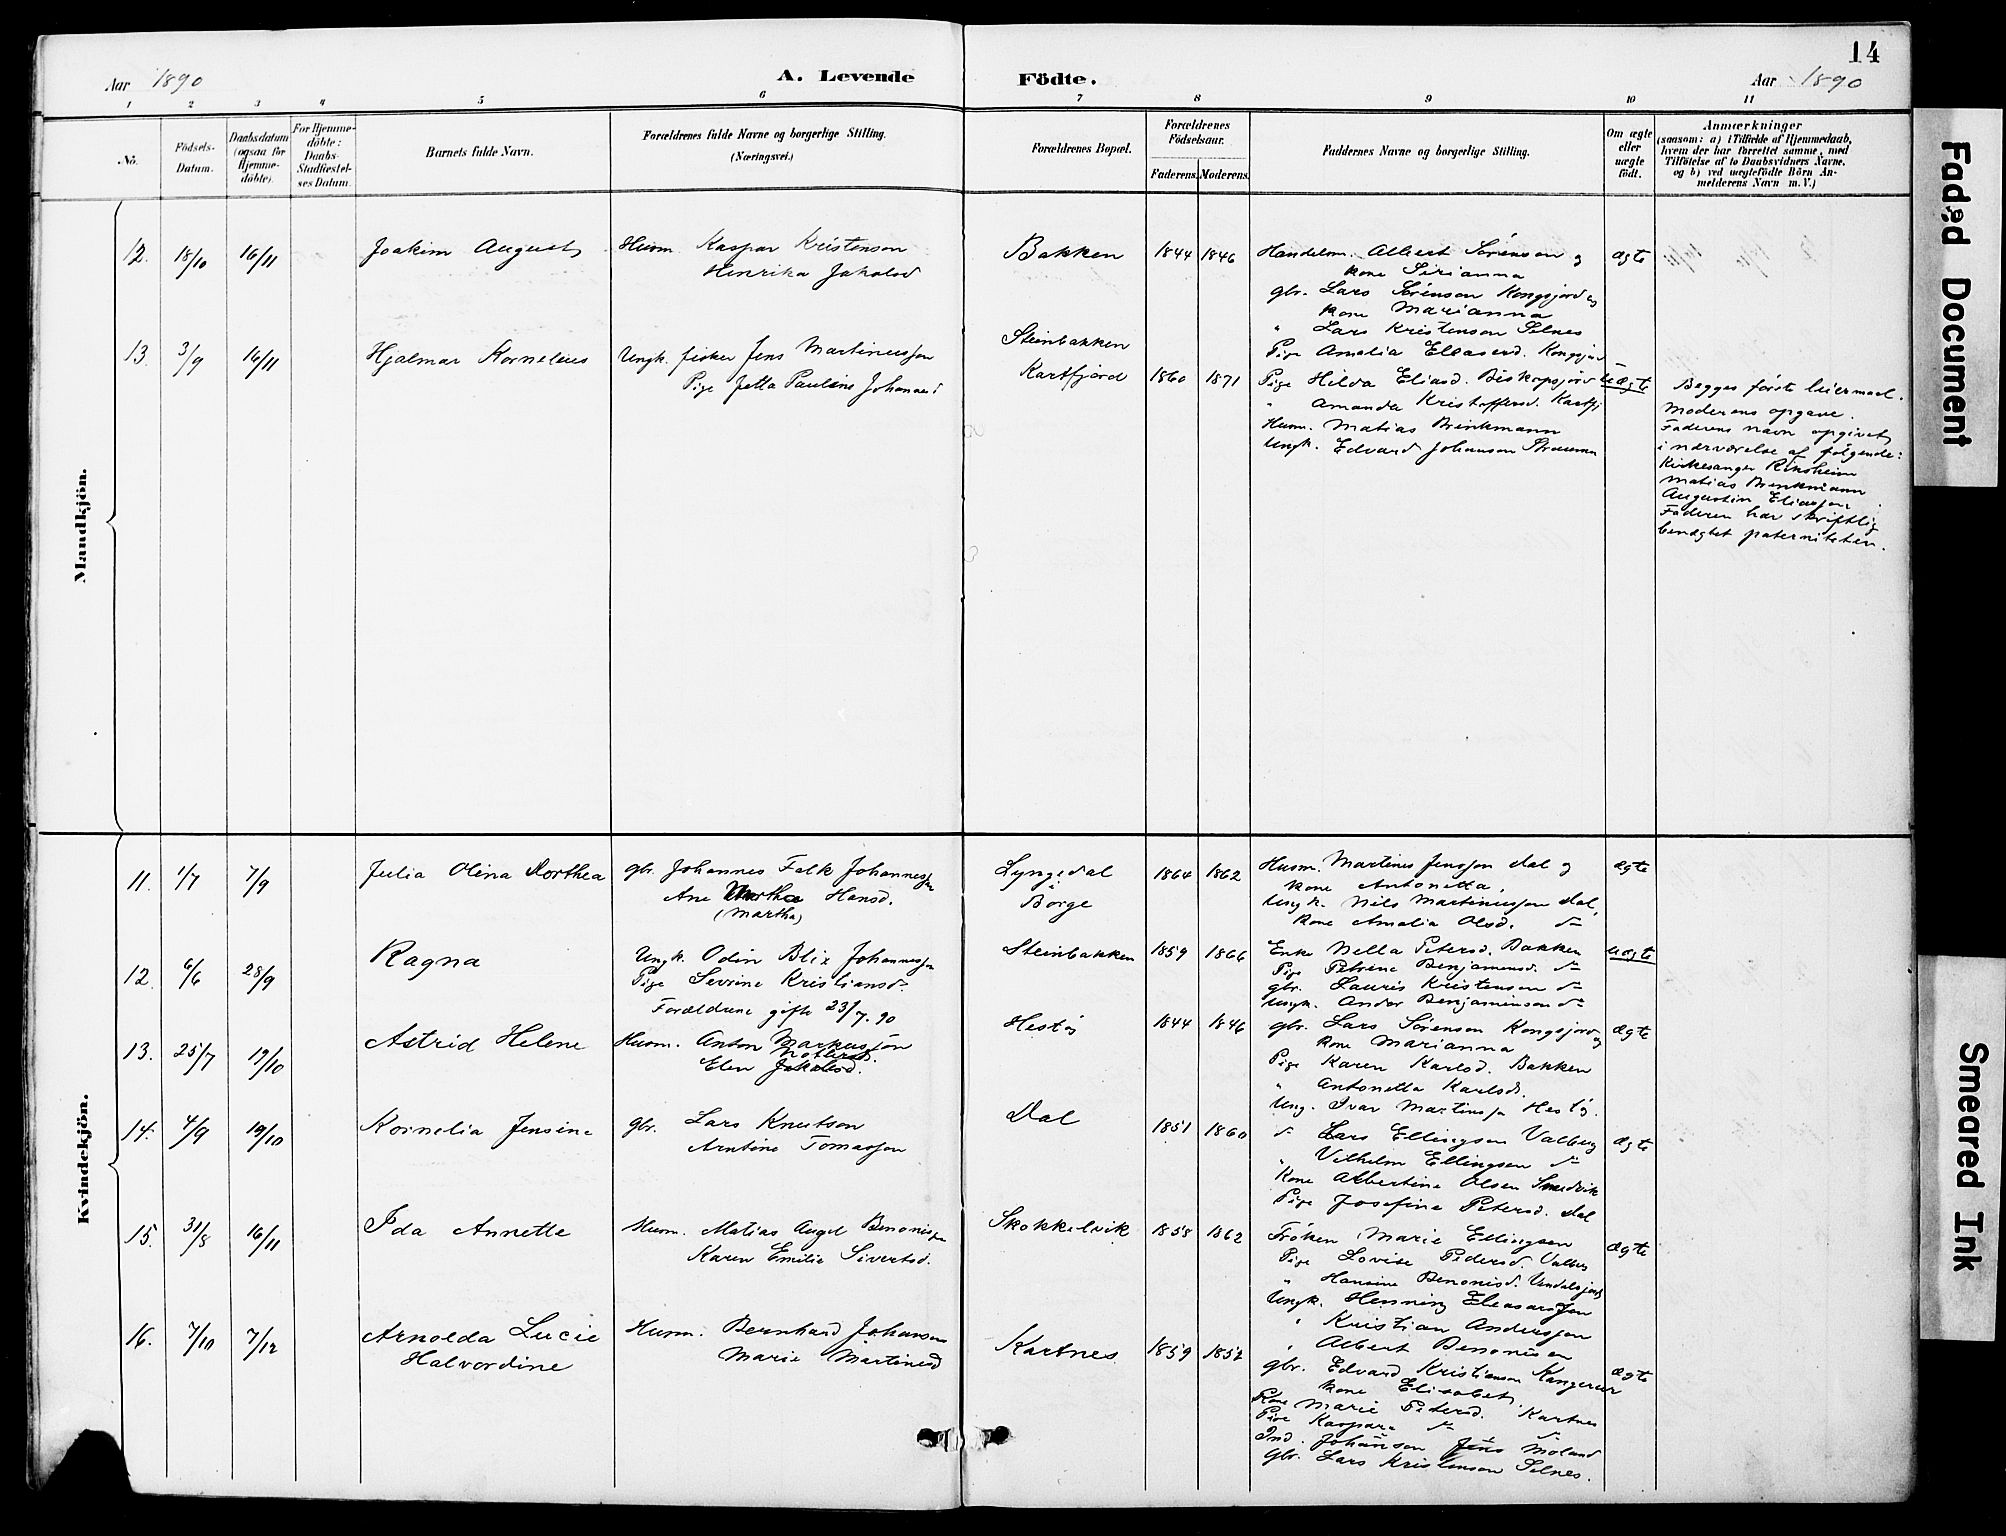 14
Aar 1890
A. Levende Födte.
Aar 1890
1 2 3 4 5 6 7 8 9 10 11
No.
Födsels-Datum.
Daabsdatum (ogsaa for Hjemme-döbte).
For Hjemme-döbte: Daabs-Stadfæstel-ses Datum
Barnets fulde Navn.
Forældrenes fulde Navne og borgerlige Stilling.
(Næringsvei.)
Forældrenes Bopæl.
Forældrenes Födselsaar.
Faderens. Moderens.
Faddernes Navne og borgerlige Stilling.
Om ægte eller uægte födt.
Anmærkninger
(saasom: a) i Tilfælde af Hjemmedaab,
hvem der har forrettet samme, med
Tilföielse af to Daabsvidners Navne,
og b) ved uægtefödte Börn An-
melderens Navn m. V.)
Mandkjön.
12. 18/10 16/11 Joakim August Husm. Kaspar Kristenson
Henrika Jakobsd
Bakken 1844 1846
Handelsm. Albert Sörenson og
kone Sirianna
gbr. Lars Sörenson Kongsjord og
kone Marianna
" Lars Kristenson Selnes
Pige Amalia Eleasersd. Kongsjord
ægte
13. 3/9 16/11 Hjalmar Kornelius Ungk. fisker Jens Martinussøn
Pige Jetta Pauline Johannesd
Steinbakken
Kartfjord 1860 1871
Pige Hilda Eliasd. Biskopsjord
" Amanda Kristoffersd. Kartfj
Husm. Matias Brinkmann
Ungk. Edvard Johanson
uægte
Begges første leiermaal.
Moderens opgave.
Faderens navn opgivet
i nærværelse af følgende:
Kirkesanger Riksheim
Matias Brinkmann
Augustin Eliassøn.
Faderen har skriftlig
benægtet paterniteten.
Kvindekjön.
11. 1/7 7/9 Julia Olina Dorthea gbr. Johannes Falk Johannessøn
Ane Hansd.
(Martha)
Lyngedal
i
Borge
1864 1862
Husm. Martines Jenssøn Dal og
kone Antonetta,
Ungk. Nils Martinussøn Dal,
kone Amalia Olsd. do
ægte
12. 6/6 28/9 Ragna Ungk. Odin Blix Johannessøn
Pige Sevrine Kristiansd.
Forældrene gifte 23/7. 90
Steinbakken 1859 1866
Enke Nella Petersd. Bakken
Pige Petrine Benjaminsd. do
gbr. Lauris Kristenson do
Ungk. Andor Benjaminson do
uægte
13. 25/7 19/10 Astrid Helene Husm. Anton Markussön
Elen Jakobsd.
Hestø 1844 1846
gbr. Lars Sörenson Kongsjord og
kone Marianna
Pige Karen Karlsd. Bakken
" Antonetta Karlsd.
Ung. Ivar Martinssøn Hestø.
ægte
14. 4/9 19/10 Kornelia Jensine gbr. Lars Knutson
Arntine Tomassøn
Dal 1851 1860
do Lars Ellingsen Valberg
" Vilhelm Ellingsen do
Kone Albertine Olsen Smedvik
Pige Josefine Petersd. Dal
ægte
15. 31/8 16/11 Ida Annette Husm. Matias Angel Benonissøn
Karen Emilie Sivertsd.
Skokkelvik 1858 1862
Frøken Marie Ellingsen
Pige Lovise Pedersd. Valberg
" Hansine Benonisd.
Ungk. Henning Eleasarssøn
" Kristian Anderssøn
" Albert Benonisen
ægte
16. 7/10 7/12 Arnolda Lucie
Halvordine
Husm. Bernhard Johansen
Marie Martinesd
Kartnes 1859 1852
gbr. Edvard Kristianson Kangerur
kone Elisabet,
Kone Marie Petersd. Kartnes
Pige Kaspara do
Ind. Johanson Jens Moland
gbr. Lars Kristenson Selnes.
ægte
Faded Document
Smeared Ink